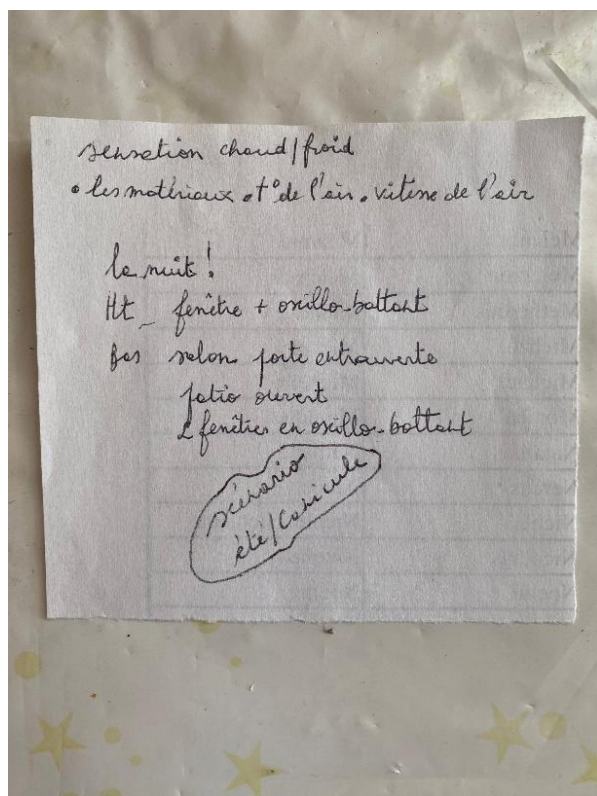 sensation chaud/froid
• les matériaux • t° de l'air • vitesse de l'air
la nuit !
Ht _ fenêtre + oscillo-battant
Bas salon porte entrouverte
patio ouvert
2 fenêtres en oscillo-battant
scénario
été/canicule